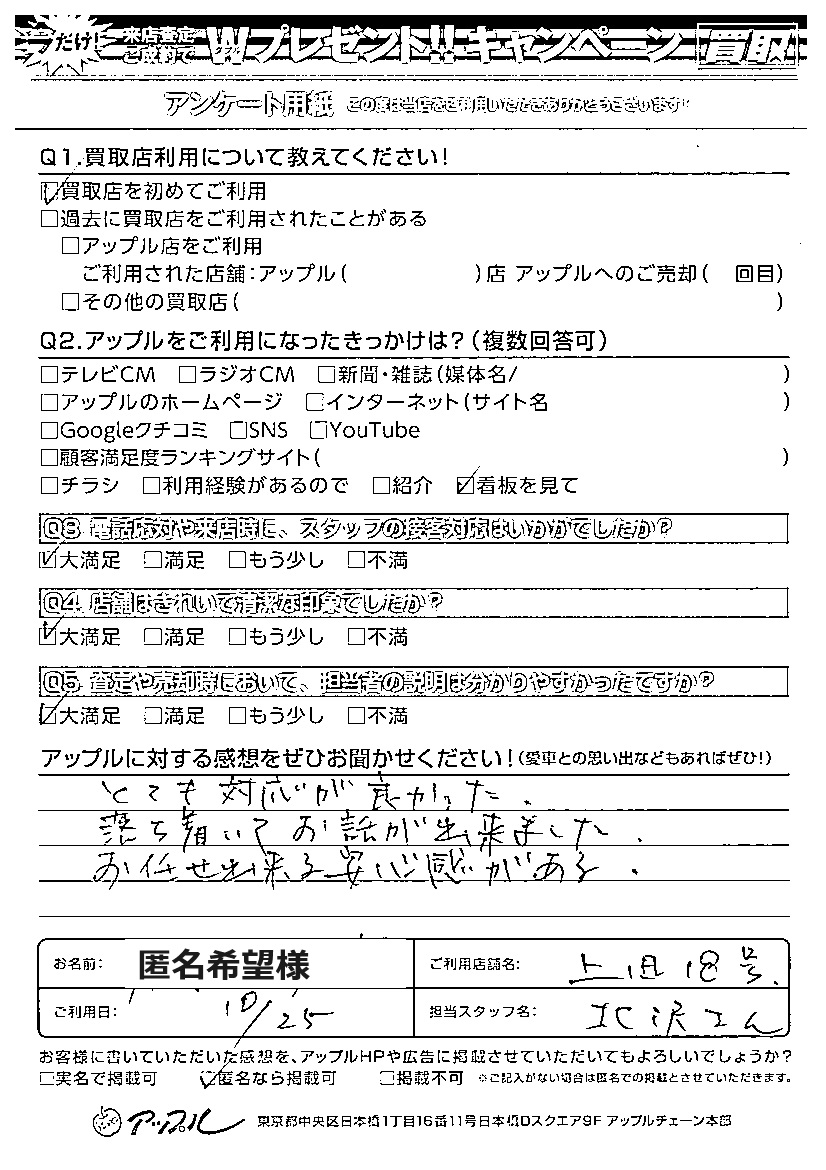 だけ! 来店査定ご成約で Wプレゼント!!キャンペーン 買取
アンケート用紙 この度は当店をご利用いただきありがとうございます!
Q1.買取店利用について教えてください!
☑買取店を初めてご利用
□過去に買取店をご利用されたことがある
□アップル店をご利用
ご利用された店舗:アップル( )店 アップルへのご売却( 回目)
□その他の買取店( )
Q2.アップルをご利用になったきっかけは?(複数回答可)
□テレビCM □ラジオCM □新聞・雑誌(媒体名/ )
□アップルのホームページ □インターネット(サイト名 )
□Googleクチコミ □SNS □YouTube
□顧客満足度ランキングサイト( )
□チラシ □利用経験があるので □紹介 ☑看板を見て
Q3. 電話応対や来店時に、スタッフの接客対応はいかがでしたか?
☑大満足 □満足 □もう少し □不満
Q4. 店舗はきれいで清潔な印象でしたか?
☑大満足 □満足 □もう少し □不満
Q5. 査定や売却時において、担当者の説明は分かりやすかったですか?
☑大満足 □満足 □もう少し □不満
アップルに対する感想をぜひお聞かせください!(愛車との思い出などもあればぜひ!)
とても対応が良かった.
落ち着いてお話が出来ました.
お任せ出来る安心感がある.
お名前: 匿名希望様 ご利用店舗名: 上田18号.
ご利用日: 10/25 担当スタッフ名: 北沢さん
お客様に書いていただいた感想を、アップルHPや広告に掲載させていただいてもよろしいでしょうか?
□実名で掲載可 ☑匿名なら掲載可 □掲載不可 ※ご記入がない場合は匿名での掲載とさせていただきます。
アップル 東京都中央区日本橋1丁目16番11号日本橋Dスクエア9F アップルチェーン本部